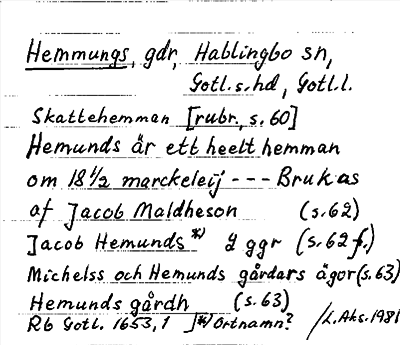 Hemmungs, gdr, Hablingbo sn,
Gotl.s.hd, Gotl.l.
Skattehemman [rubr., s. 60]
Hemunds är ett heelt hemman
om 18 1/2 marckeleij --- Brukas
af Jacob Maldheson (s. 62)
Jacob Hemunds *) 2 ggr (s. 62 f.)
Michelss och Hemunds gårdars ägor (s. 63)
Hemunds gårdh (s. 63)
Rb Gotl. 1653,1 *) Ortnamn? /L.Ahs. 1981